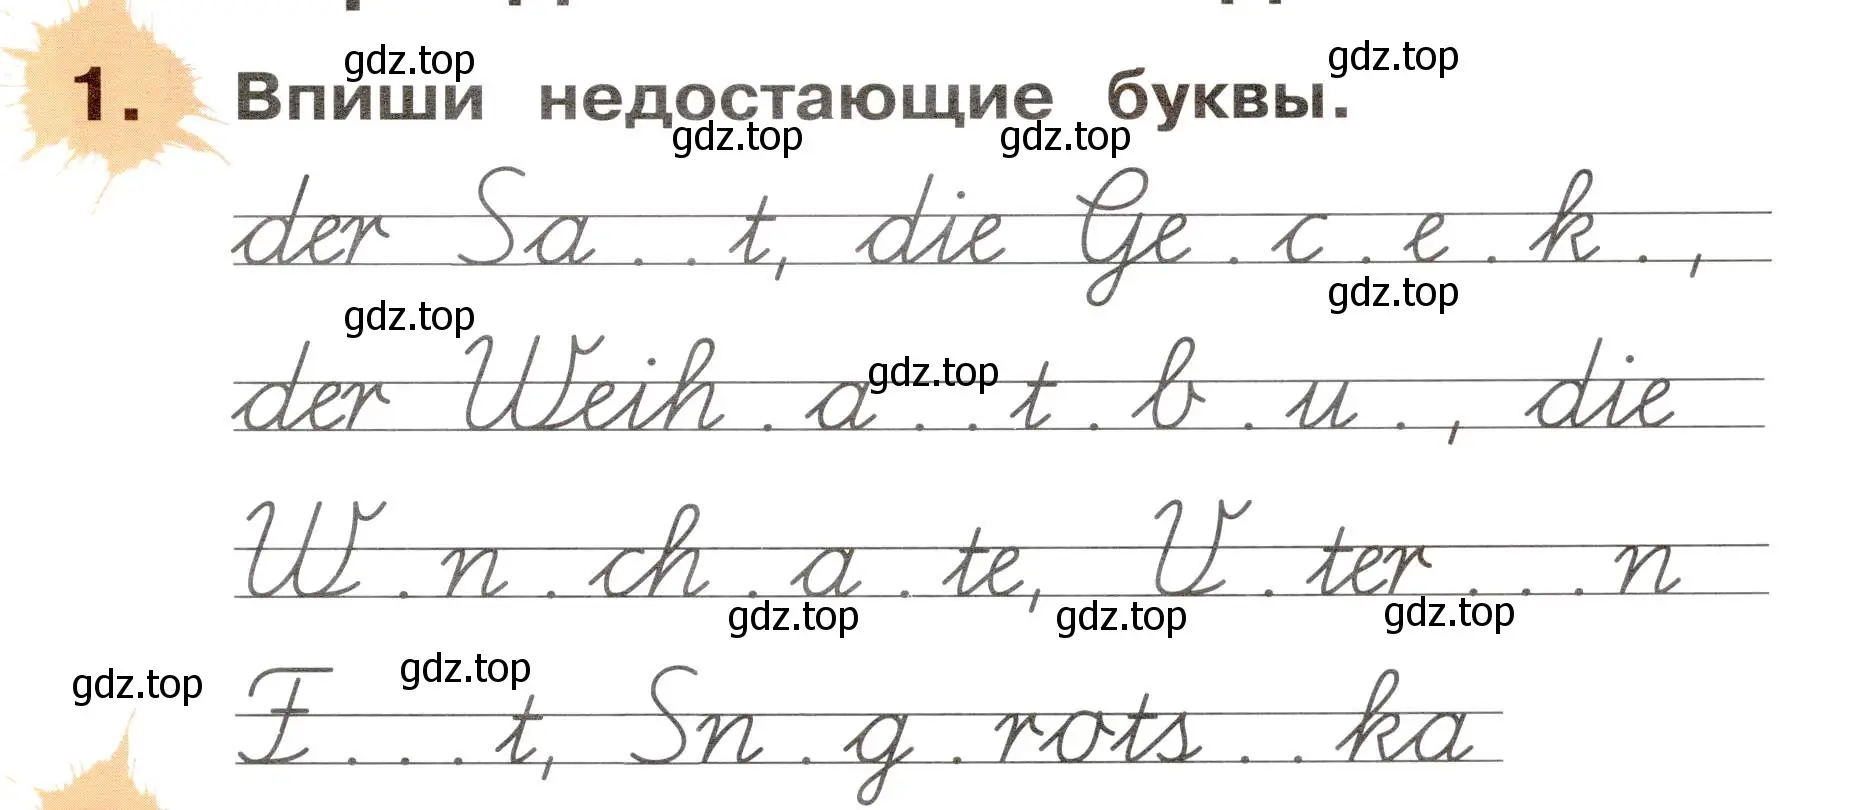 gdz.top gdz.top
1. Впиши недостающие буквы.
gdz.top gdz.top
der Sa . . t, die Ge . c . e . k . ,
gdz.top gdz.top
der Weih . a . . t . b . u . , die
gdz.top
W . n . ch . a . te, V . ter . . . n
gdz.top gdz.top gdz.top
gdz.top gdz.top
F . . . t, Sn . g . rots . . ka